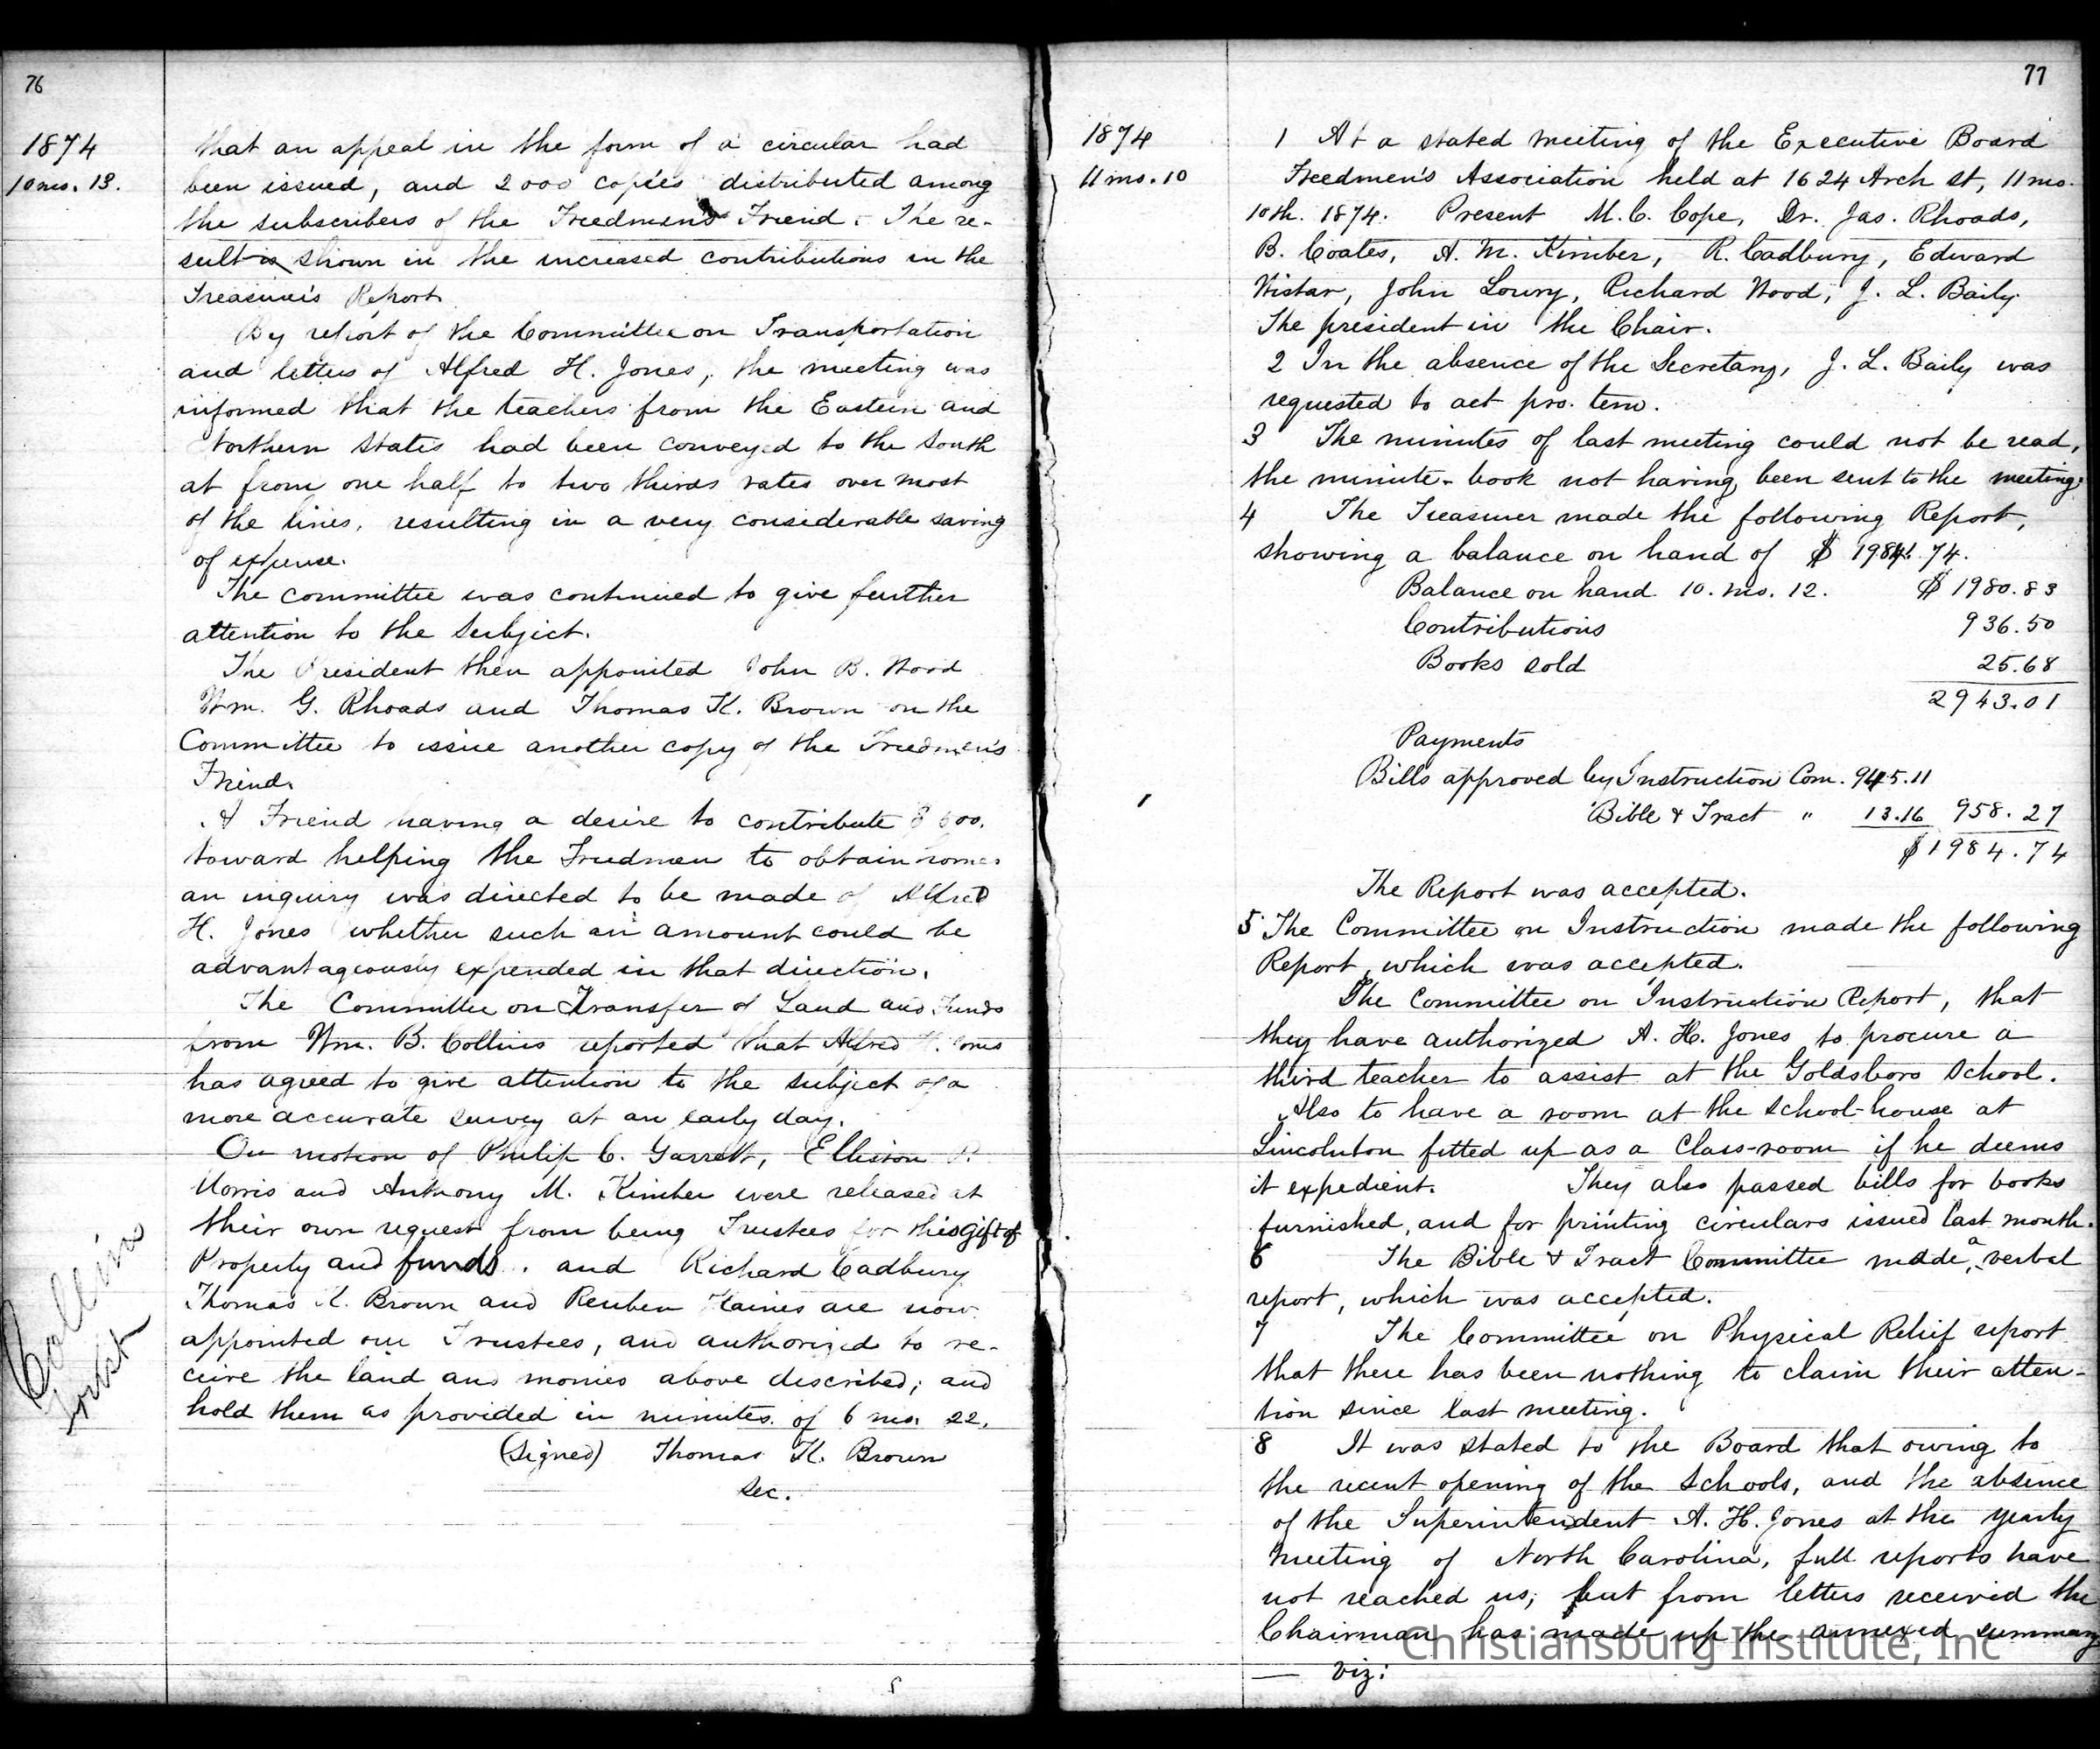 76
1874
10 mo. 13.
that an appeal in the form of a circular had
been issued, and 2000 copies distributed among
the subscribers of the Freedmens Friend. The re-
sult is shown in the increased contributions in the
Treasurer's Report.
By report of the Committee on Transportation
and letters of Alfred H. Jones, the meeting was
informed that the teachers from the Eastern and
Northern States had been conveyed to the South
at from one half to two thirds rates over most
of the lines, resulting in a very considerable saving
of expense.
The committee was continued to give further
attention to the subject.
The President then appointed John B. Wood
Wm. G. Rhoads and Thomas K. Brown on the
Committee to issue another copy of the Freedmen's
Friend.
A Friend having a desire to contribute
toward helping the Freedmen to obtain homes
an inquiry was directed to be made of Alfred
H. Jones whether such an amount could be
advantageously expended in that direction.
The Committee on Transfer of Land and Funds
from Wm. B. Collins reported that Alfred H. Jones
has agreed to give attention to the subject of a
more accurate survey at an early day.
On motion of Philip C. Garrett, Elliston P.
Morris and Anthony M. Kimber were released at
their own request from being Trustees for this gift of
Property and funds. and Richard Cadbury
Thomas K. Brown and Reuben Haines are now
appointed our Trustees, and authorized to re-
ceive the land and monies above described; and
hold them as provided in minutes of 6 mo. 22.
(Signed) Thomas K. Brown
Sec.
Collins
77
1874
11 mo. 10
1 At a stated meeting of the Executive Board
Freedmen's Association held at 1624 Arch st, 11 mo.
10th. 1874. Present M. C. Cope, Dr. Jas. Rhoads,
B. Coates, A. M. Kimber, R. Cadbury, Edward
Wistar, John Lowry, Richard Wood, J. L. Baily
The president in the Chair.
2 In the absence of the Secretary, J. L. Baily was
requested to act pro. tem.
3 The minutes of last meeting could not be read,
the minute-book not having been sent to the meeting.
4 The Treasurer made the following Report,
showing a balance on hand of $ 1984.74.
Balance on hand 10. mo. 12. $ 1980.83
Contributions 936.50
Books sold 25.68
2943.01
Payments
Bills approved by Instruction Com. 945.11
Bible & Tract " 13.16 958.27
$1984.74
The Report was accepted.
5 The Committee on Instruction made the following
Report, which was accepted.
The Committee on Instruction Report, that
they have authorized A. H. Jones to procure a
third teacher to assist at the Goldsboro School.
Also to have a room at the school-house at
Lincolnton fitted up as a Class-room if he deems
it expedient. They also passed bills for books
furnished, and for printing circulars issued last month.
6 The Bible & Tract Committee made a verbal
report, which was accepted.
7 The Committee on Physical Relief report
that there has been nothing to claim their atten-
tion since last meeting.
8 It was stated to the Board that owing to
the recent opening of the Schools, and the absence
of the Superintendent A. H. Jones at the yearly
meeting of North Carolina, full reports have
not reached us; but from letters received the
Chairman has made up the annexed summary
viz:
Christiansburg Institute, Inc